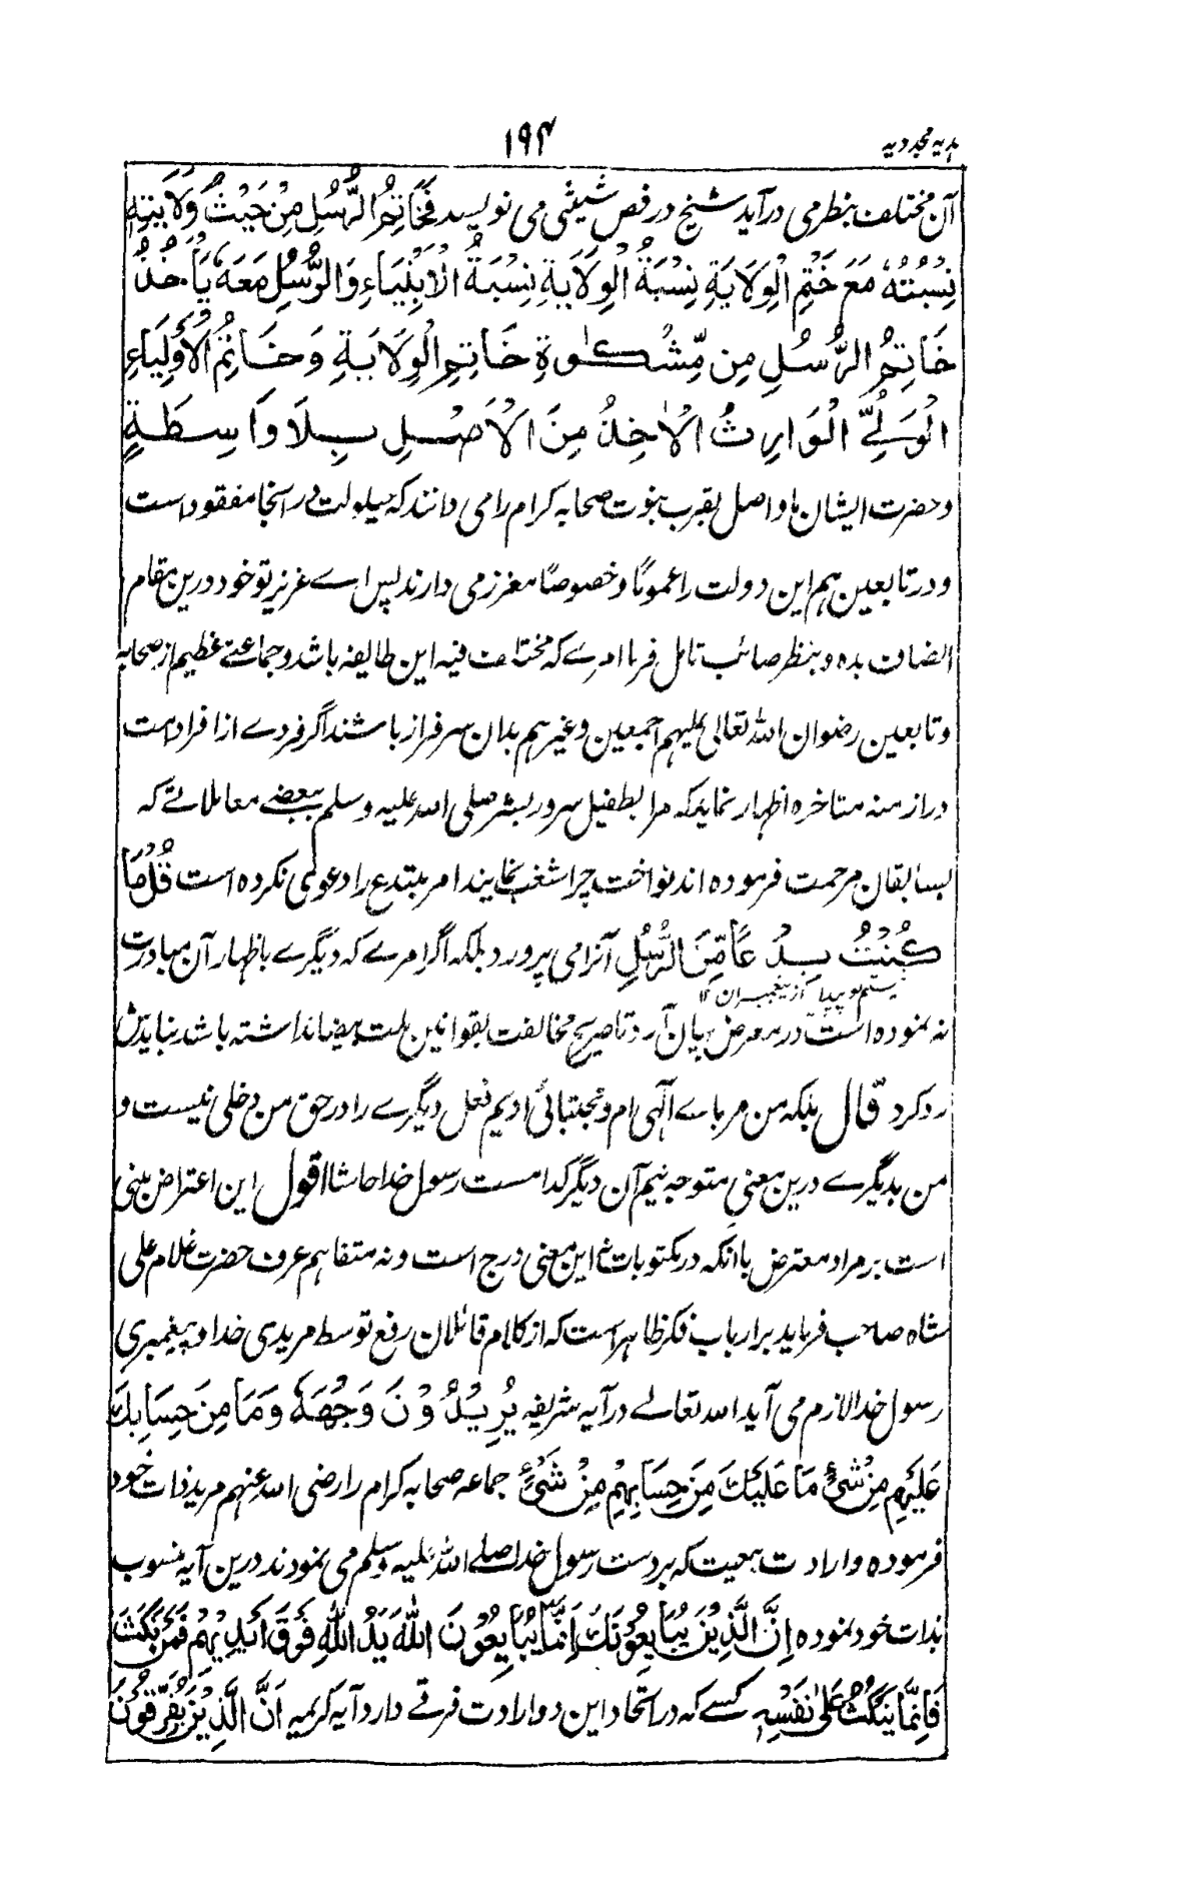 ہدیہ مجددیہ
۱۹۴
آن مختلف بنظر می درآید شیخ در فص شیثی می نویسد فَخَاتِمُ الرُّسُلِ مِنْ حَيْثُ وَلَايَتِهٖ
نِسْبَتُهٗ مَعَ خَتْمِ الْوِلَايَةِ نِسْبَةُ الْوِلَايَةِ نِسْبَةُ الْاَنْبِيَاءِ وَالرُّسُلِ مَعَهٗ يَاْخُذُ
خَاتِمُ الرُّسُلِ مِن مِّشْكٰوةِ خَاتِمِ الْوِلَايَةِ وَخَاتِمُ الْاَوْلِيَاءِ
الْوَلِيُّ الْوَارِثُ الْاٰخِذُ مِنَ الْاَصْلِ بِلَا وَاسِطَةٍ
و حضرت ایشان ما واصل بقرب نبوت صحابہ کرام را می دانند کہ حیلولت در آنجا مفقود است
و در تابعین ہم این دولت را عموماً و خصوصاً معزز می دارند پس اے عزیز تو خود درین مقام
انصاف بدہ و بنظر صائب تامل فرما امرے کہ مختلف فیہ این طایفہ باشد و جماعتے عظیم از صحابہ
و تابعین رضوان اللہ تعالی علیہم اجمعین و غیرہم بدان سرفراز باشند اگر فردے از افراد امت
در ازمنہ متاخرہ اظہار نماید کہ مرا بطفیل سرور بشر صلی اللہ علیہ وسلم ببعضے معاملاتے کہ
بسابقان مرحمت فرمودہ اند نواخت چرا شغب نمایند امر مبتدع را دعوی نکردہ است قُلْ مَا
كُنْتُ بِدْعًا مِّنَ الرُّسُلِ آنرا می پرورد بلکہ اگر امرے کہ دیگرے باظہار آن مبادرت
نیستم نو پیدا از پیغمبران ۱۲
نہ نمودہ است در معرض بیان آرد تا صریح مخالفت بقوانین ملت بیضا نداشتہ باشد نبایدش
رد کرد قال بلکہ من مرباے الٰہی ام و مجتبائی اویم فعل دیگرے را در حق من دخلی نیست و
من بدیگرے درین معنی متوجہ نیم آن دیگر کدامست رسول خدا حاشا اقول این اعتراض مبنی
است بر مراد معترض با آنکہ در مکتوبات نہ این معنی درج است و نہ متفاہم عرف حضرت غلام علی
شاہ صاحب فرماید بر ارباب فکر ظاہر است کہ از کلام قائلان رفع توسط مریدی خدا و پیغمبری
رسول خدا لازم می آید اللہ تعالے در آیہ شریفہ يُرِيْدُوْنَ وَجْهَهٗ وَمَا مِنَ حِسَابِكَ
عَلَيْهِم مِنْ شَيْءٍ مَا عَلَيْكَ مِنَ حِسَابِهِمْ مِنْ شَيْءٍ جماعہ صحابہ کرام را رضی اللہ عنہم مرید ذات خود
فرمودہ و ارادت بیعیت کہ بر دست رسول خدا صلے اللہ علیہ وسلم می نمودند درین آیہ منسوب
بذات خود نمودہ اِنَّ الَّذِيْنَ يُبَايِعُوْنَكَ اِنَّمَا يُبَايِعُوْنَ اللّٰهَ يَدُ اللّٰهِ فَوْقَ اَيْدِيْهِمْ فَمَنْ نَكَثَ
فَاِنَّمَا يَنْكُثُ عَلٰى نَفْسِهٖ کسے کہ در اتحاد این دو ارادت فرقے دارد آیہ کریمہ اَنَّ الَّذِيْنَ يُفَرِّقُوْنَ